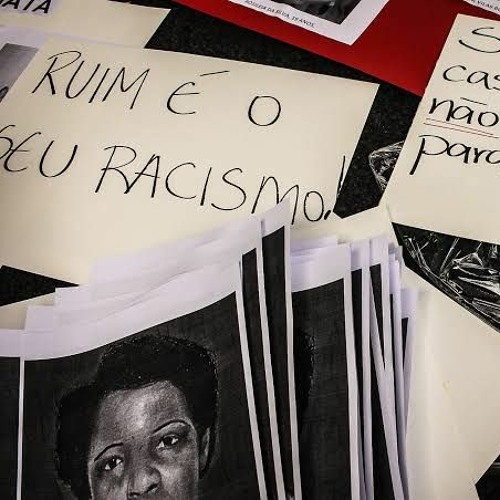 ATA
RUIM É O
SEU RACISMO!
DA SILVA, 19 ANOS.
S
cas
não
para